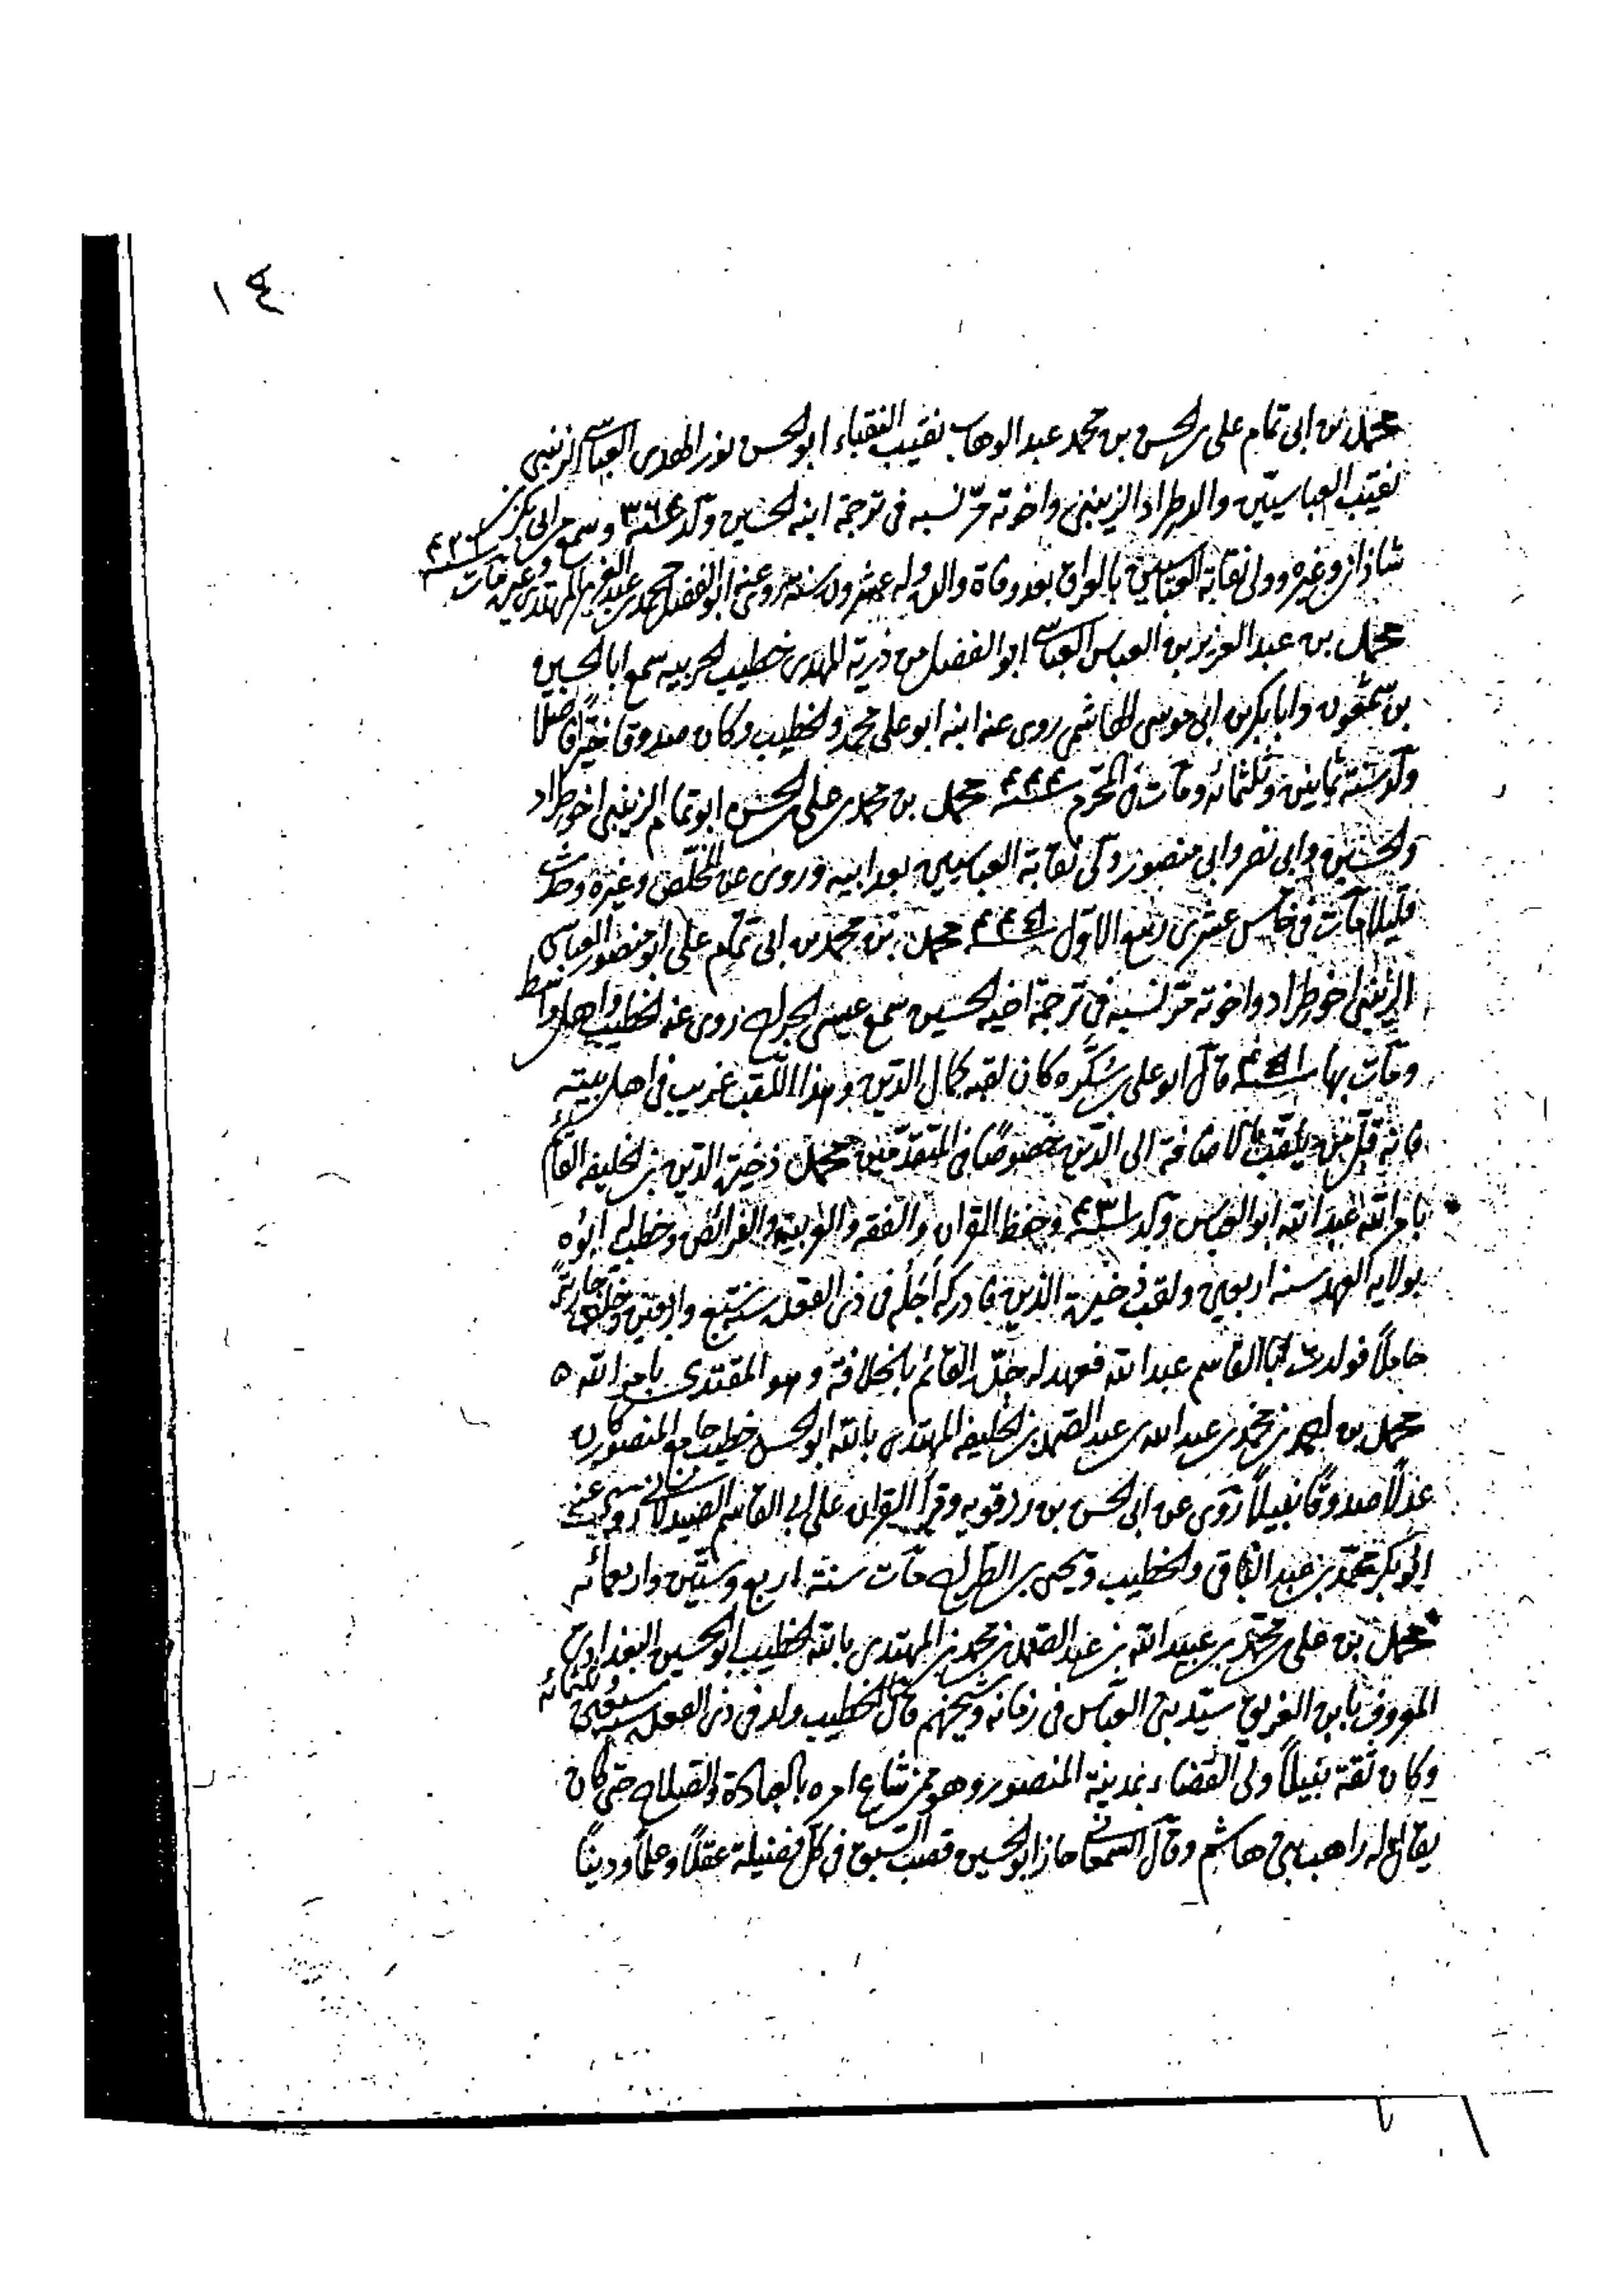 ١٤
محمد بن ابى تمام على بن الحسن بن محمد عبد الوهاب نقيب النقباء ابو الحسن نور الهدى العباسى الزينبى
نقيب العباسيين والد طراد الزينبى واخوته مرّ نسبه فى ترجمة ابنه الحسين ولد سنة ٣٦٤ وسمع من ابى بكر بن
شاذان وغيره وولى نقابة العباسيين بالعراق بعد وفاة والده وله عشرون سنة روى عنه ابو الفضل محمد بن عبد العزيز بن المهتدى وغيره مات سنة ٤٢٦
محمد بن عبد العزيز بن العباس العباسى ابو الفضل من ذرية المهدى خطيب الحربيه سمع ابا الحسين
بن سمعون وابا بكر بن ابى موسى الهاشمى روى عنه ابنه ابو على محمد والخطيب وكان صدوقا خيّرا فاضلاً
ولد سنة ثمانين وثلثمائه ومات فى المحرم سنة ٤٤٤ محمد بن محمد بن على بن الحسن ابو تمام الزينبى اخو طراد
والحسين وابى نصر وابى منصور ولى نقابة العباسيين بعد ابيه وروى عن المخلّص وغيره وحدث
قليلا مات فى خامس عشرى ربيع الاول سنة ٤٤٥ محمد بن محمد بن ابى تمام على ابو منصور العباسى
الزينبى اخو طراد واخوته مرّ نسبه فى ترجمة اخيه الحسين سمع عيسى بن الجراح روى عنه الخطيب واهل واسط
ومات بها سنة ٤٥١ قال ابو على بن سكّره كان لقبه كمال الدين وهذا اللقب غريب فى اهل بيته
فانه قل من يلقب بالاضافة الى الدين خصوصًا فى المتقدّمين محمد ذخيرة الدين بن الخليفه القائم
بامر الله عبد الله ابو العباس ولد سنة ٤٣١ وحفظ القران والفقه والعربية والفرائض وخطب له ابوه
بولايه العهد سنه اربعين ولقب ذخيرة الدين فادركه اجله فى ذى القعده سنة سبع واربعين وخلّف جارية
حاملاً فولدت ابا القاسم عبد الله فعهد له جدّه القائم بالخلافة وهو المقتدى بامر الله ٥
محمد بن احمد بن محمد بن عبد الله بن عبد الصمد بن الخليفه المهتدى بالله ابو الحسن خطيب جامع المنصور كان
عدلاً صدوقًا نبيلاً روى عن ابى الحسن بن رزقويه وقرأ القران على ابى القاسم الصيدلانى روى عنه
ابو بكر محمد بن عبد الباقى والخطيب ويحيى بن الطراح مات سنة اربع وستين واربعمائه
محمد بن على بن محمد بن عبيد الله بن عبد الصمد بن محمد بن المهتدى بالله الخطيب ابو الحسين البغدادى
المعروف بابن الغريق سيّد بنى العباس فى زمانه وشيخهم قال الخطيب ولد فى ذى القعده سنة سبعين وثلثمائه
وكان ثقة نبيلاً ولى القضاء بمدينة المنصور وهو ممن شاع امره بالعبادة والصلاح حتى كان
يقال له راهب بنى هاشم وقال السمعانى حاز ابو الحسين قصب السبق فى كل فضيلة عقلاً وعلماً ودينًا